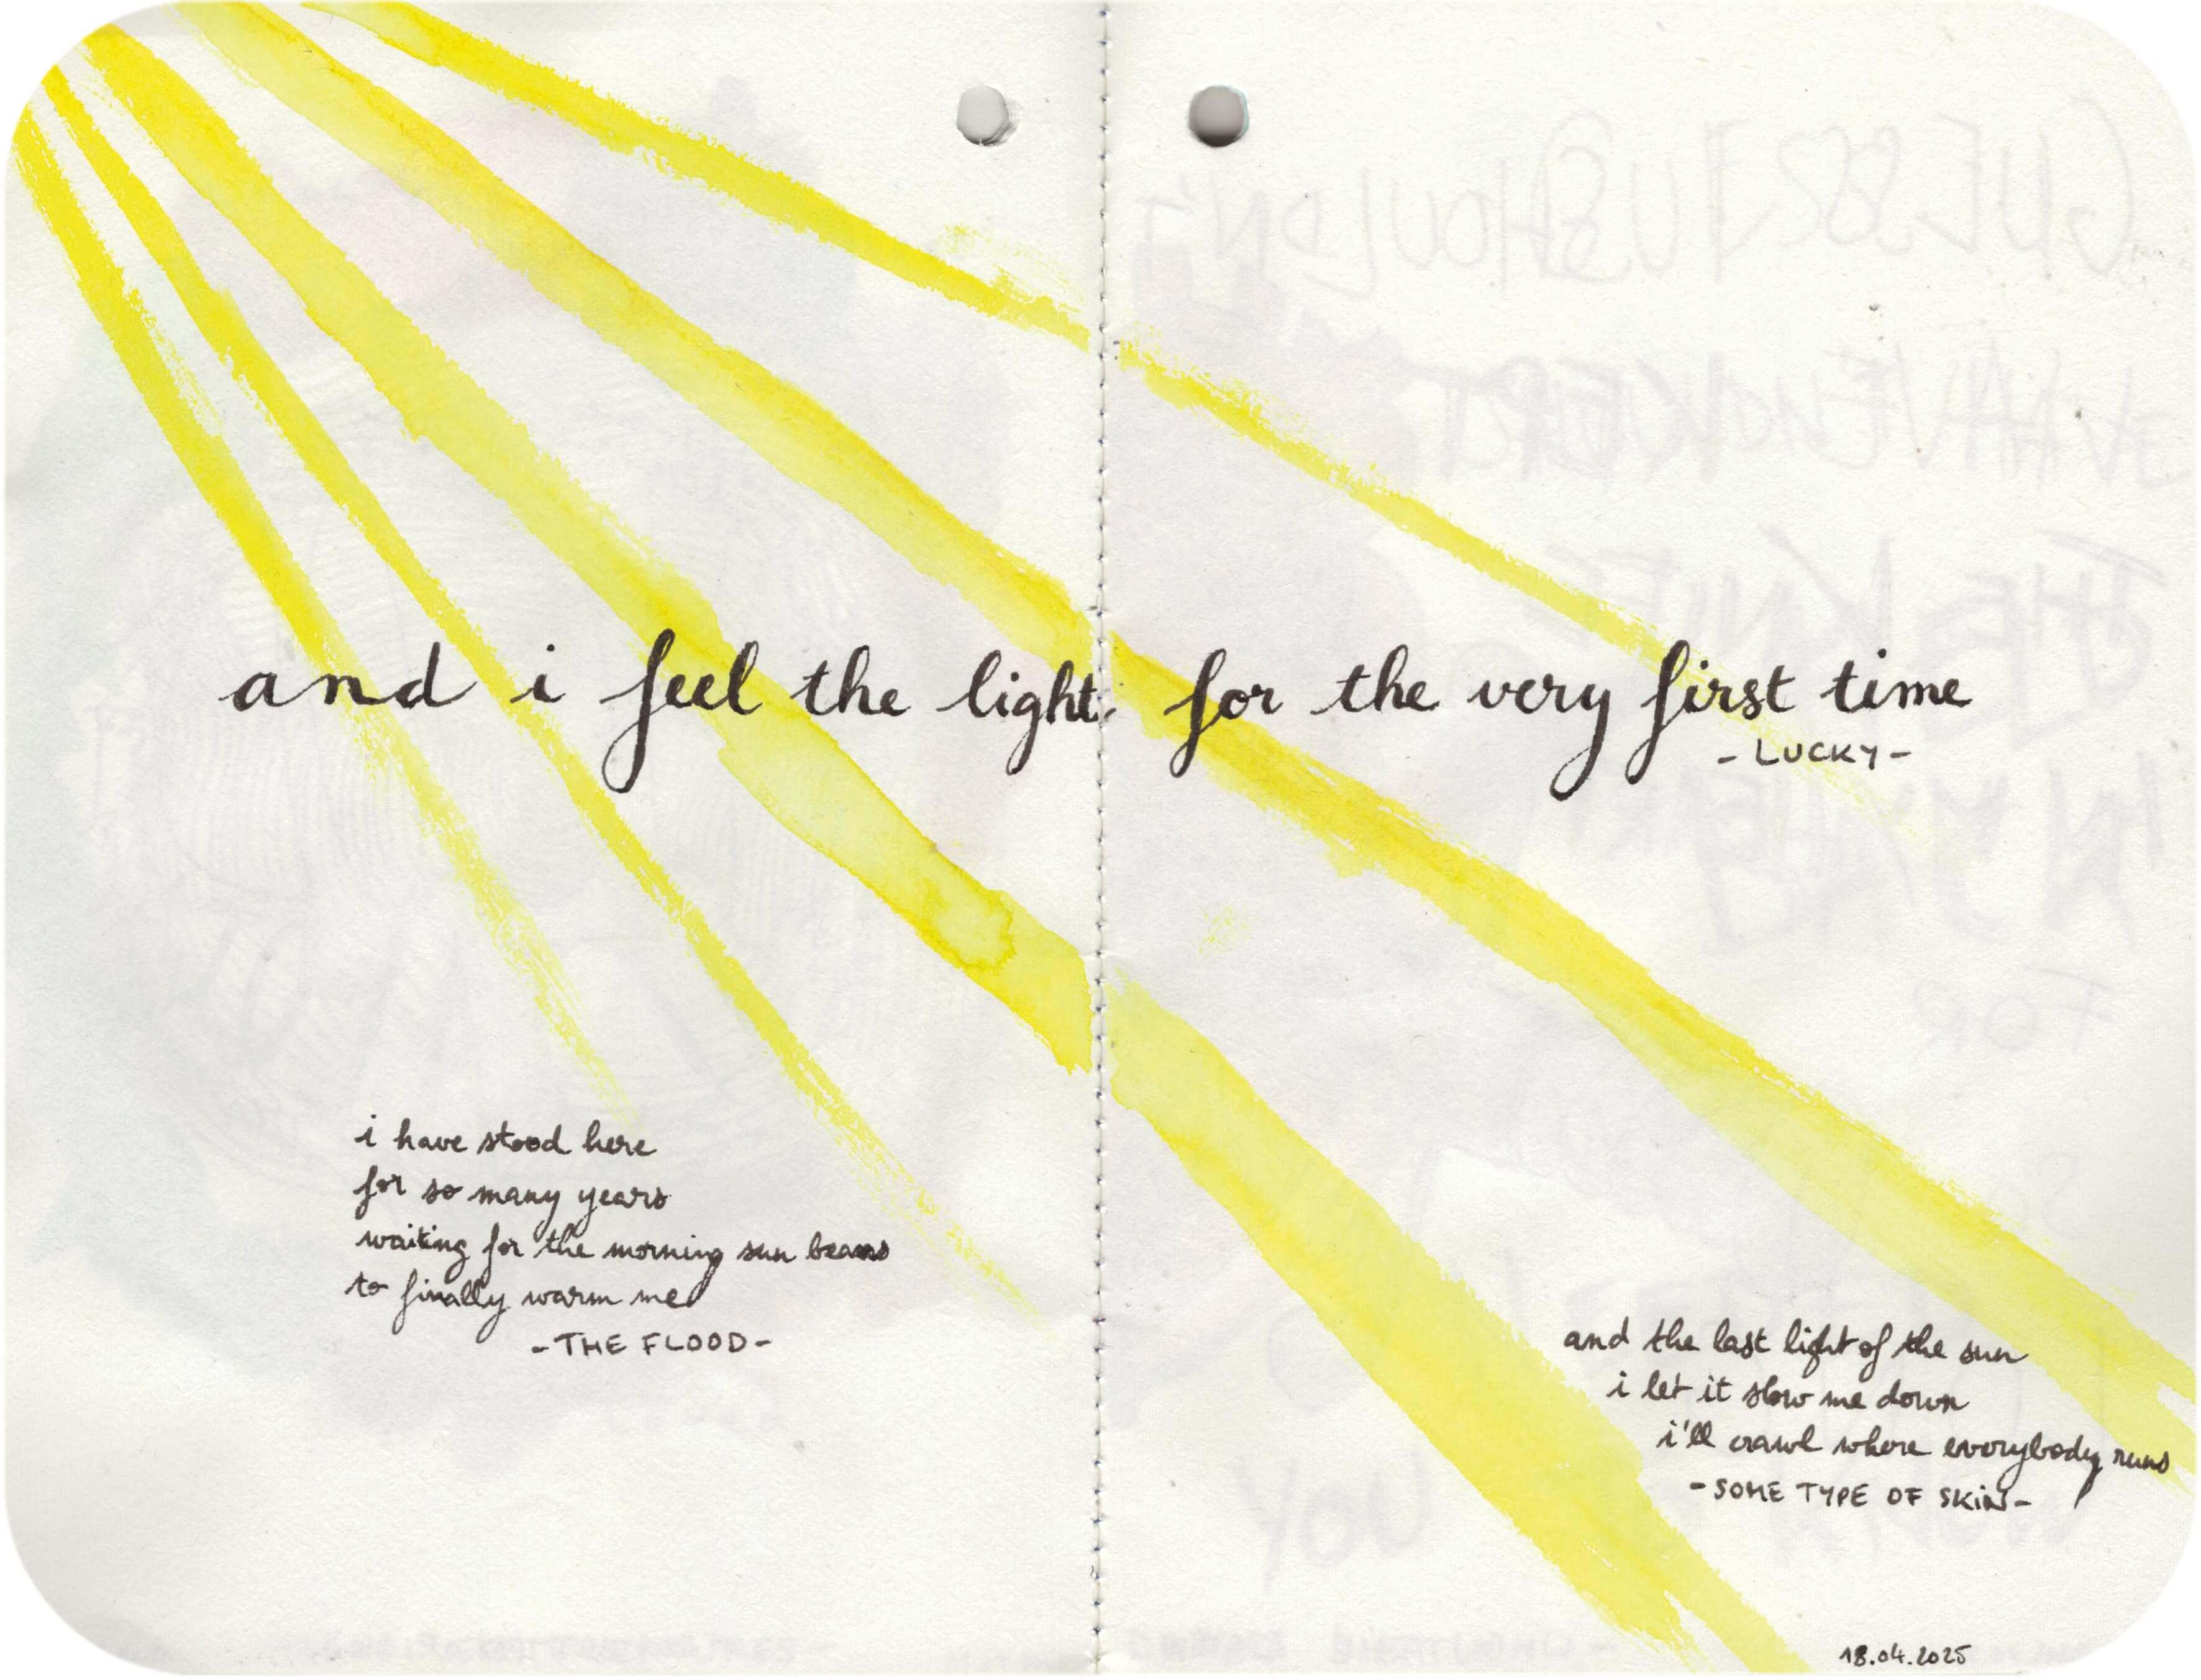 and i feel the light for the very first time
- LUCKY -
i have stood here
for so many years
waiting for the morning sun beams
to finally warm me
- THE FLOOD -
and the last light of the sun
i let it slow me down
i'll crawl where everybody runs
- SOME TYPE OF SKIN -
18.04.2025